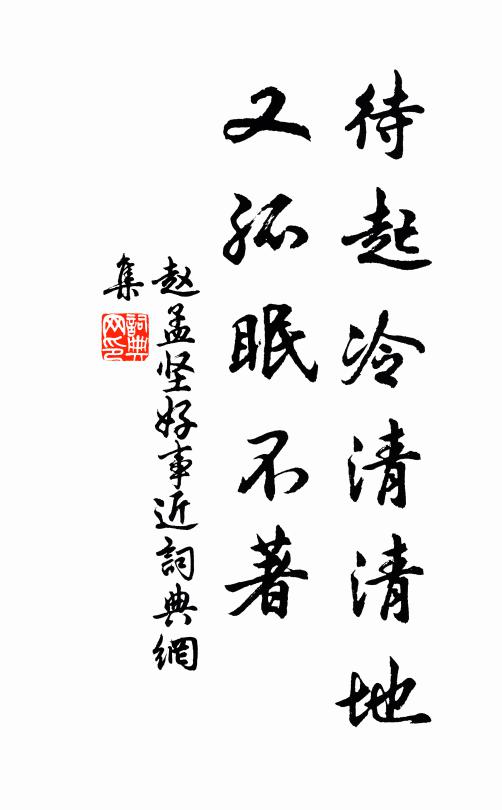 待起冷清清地
又孤眠不著
赵孟坚好事近詞典網
集
詞典
网印